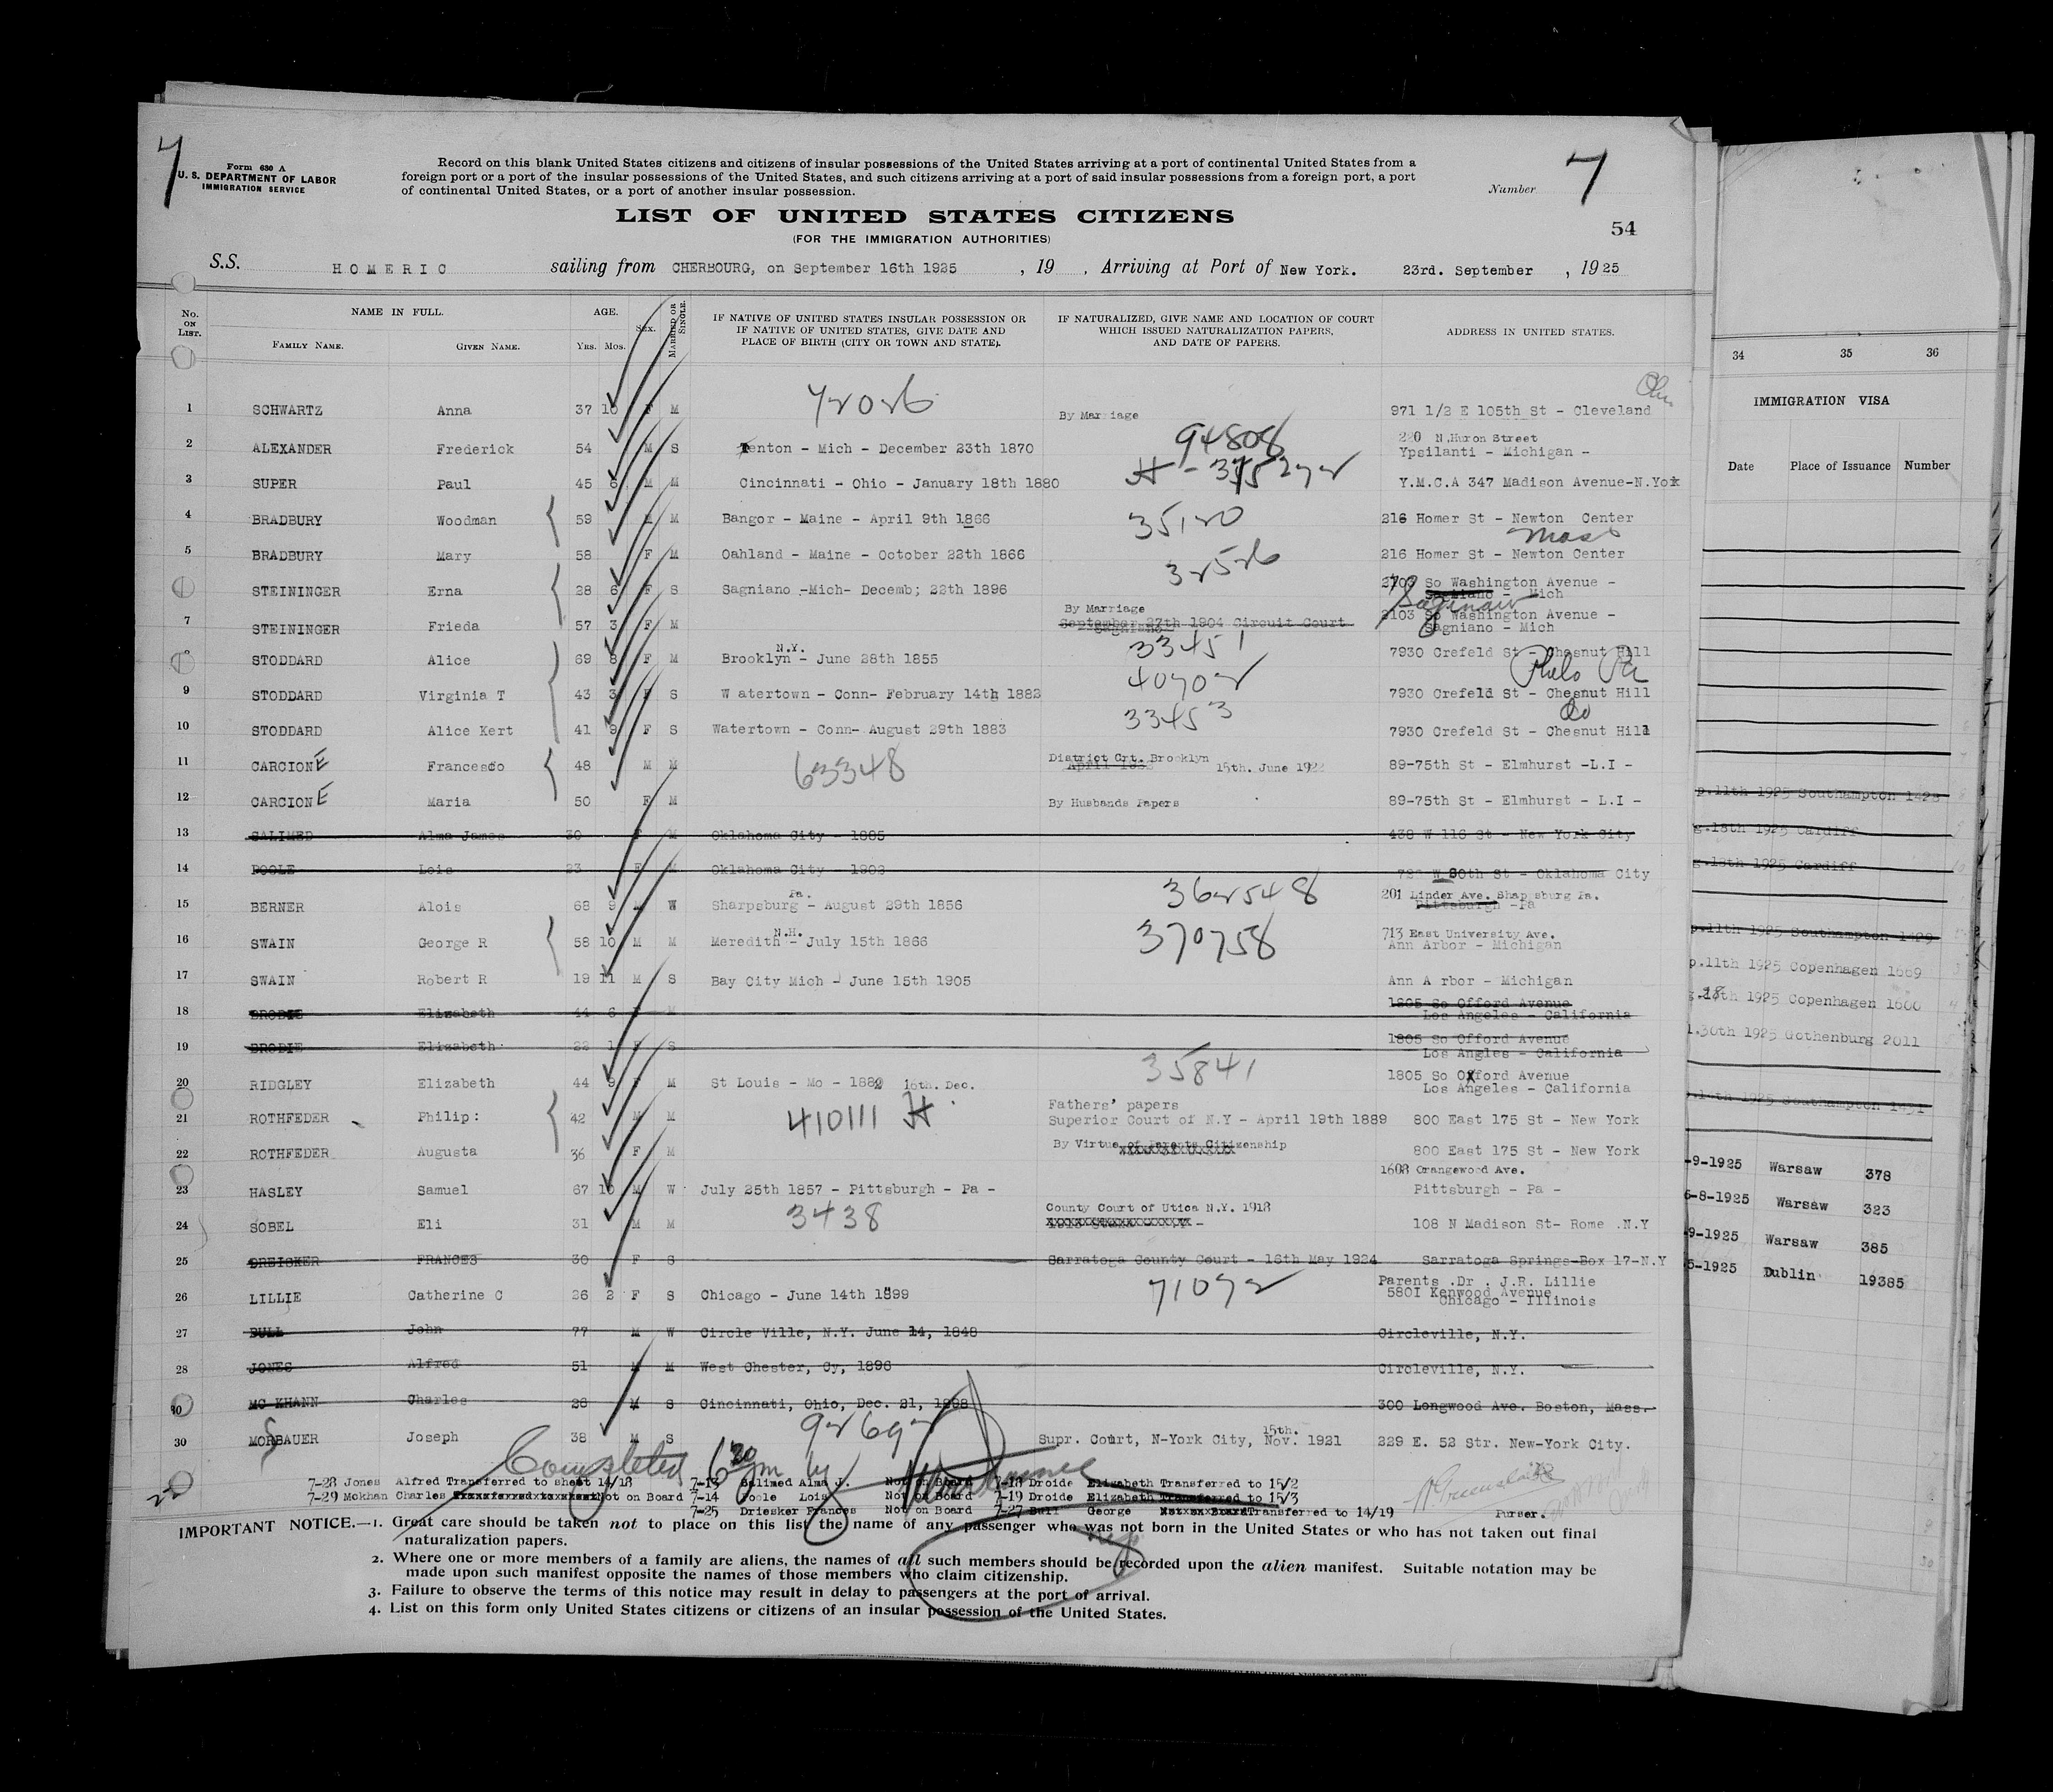 7
Form 630 A
U. S. DEPARTMENT OF LABOR
IMMIGRATION SERVICE
Record on this blank United States citizens and citizens of insular possessions of the United States arriving at a port of continental United States from a
foreign port or a port of the insular possessions of the United States, and such citizens arriving at a port of said insular possessions from a foreign port, a port
of continental United States, or a port of another insular possession.
Number 7
LIST OF UNITED STATES CITIZENS
(FOR THE IMMIGRATION AUTHORITIES)
54
S.S. HOMERIC sailing from CHERBOURG, on September 16th 1925 , 19 , Arriving at Port of New York. 23rd. September , 1925
No. ON LIST. NAME IN FULL. AGE. SEX. MARRIED OR SINGLE. IF NATIVE OF UNITED STATES INSULAR POSSESSION OR IF NATIVE OF UNITED STATES, GIVE DATE AND PLACE OF BIRTH (CITY OR TOWN AND STATE). IF NATURALIZED, GIVE NAME AND LOCATION OF COURT WHICH ISSUED NATURALIZATION PAPERS, AND DATE OF PAPERS. ADDRESS IN UNITED STATES.
FAMILY NAME. GIVEN NAME. Yrs. Mos.
1 SCHWARTZ Anna 37 10 F M By Marriage 971 1/2 E 105th St - Cleveland
94808
2 ALEXANDER Frederick 54 M S Fenton - Mich - December 23th 1870 220 N.Huron Street
Ypsilanti - Michigan -
3 SUPER Paul 45 6 M M Cincinnati - Ohio - January 18th 1880 Y.M.C.A 347 Madison Avenue-N.York
4 BRADBURY Woodman 59 M M Bangor - Maine - April 9th 1866 35120 216 Homer St - Newton Center
Mass
5 BRADBURY Mary 58 F M Oahland - Maine - October 22th 1866 216 Homer St - Newton Center
32526
STEININGER Erna 28 6 F S Sagniano -Mich- Decemb; 22th 1896 2103 So Washington Avenue -
Sagniano - Mich
Saginaw
7 STEININGER Frieda 57 3 F M By Marriage 2103 So Washington Avenue -
September 27th 1904 Circuit Court
Sagniano - Mich
33451
STODDARD Alice 69 8 F M Brooklyn N.Y. - June 28th 1855 7930 Crefeld St - Chesnut Hill
Phila Pa
9 STODDARD Virginia T 43 3 F S W atertown - Conn- February 14th 1882 40702 7930 Crefeld St - Chesnut Hill
do
10 STODDARD Alice Kert 41 9 F S Watertown - Conn- August 29th 1883 33453 7930 Crefeld St - Chesnut Hill
11 CARCIONE Francesco 48 M M 63348 District Crt. Brooklyn 15th. June 1922 89-75th St - Elmhurst -L.I -
12 CARCIONE Maria 50 F M By Husbands Papers 89-75th St - Elmhurst - L.I -
13 SALIMED Alma James 30 F M Oklahoma City - 1885 438 W 116 St - New York City
14 POOLE Lois 23 F M Oklahoma City - 1902 W 30th St - Oklahoma City
15 BERNER Alois 68 9 M W Sharpsburg Pa. - August 29th 1856 362548 201 Linder Ave. Shapsburg Pa.
Pittsburgh -Pa
16 SWAIN George R 58 10 M M Meredith N.H. - July 15th 1866 370758 713 East University Ave.
Ann Arbor - Michigan
17 SWAIN Robert R 19 11 M S Bay City Mich - June 15th 1905 Ann A rbor - Michigan
18 BRODIE Elizabeth 44 6 F M 1805 So Offord Avenue
Los Angeles - California
19 BRODIE Elizabeth 22 1 F S 1805 So Offord Avenue
Los Angles - California
20 RIDGLEY Elizabeth 44 9 F M St Louis - Mo - 1880 16th. Dec. 35841 1805 So Oxford Avenue
Los Angeles - California
21 ROTHFEDER Philip: 42 M M 410111 H Fathers' papers
Superior Court of N.Y - April 19th 1889 800 East 175 St - New York
22 ROTHFEDER Augusta 36 F M By Virtue of Parents Citizenship 800 East 175 St - New York
1608 Orangewood Ave.
23 HASLEY Samuel 67 10 M W July 25th 1857 - Pittsburgh - Pa - Pittsburgh - Pa -
24 SOBEL Eli 31 M M 3438 County Court of Utica N.Y. 1918 108 N Madison St- Rome .N.Y
25 DREISKER FRANCES 30 F S Sarratoga County Court - 16th May 1924 Sarratoga Springs-Box 17-N.Y
26 LILLIE Catherine C 26 2 F S Chicago - June 14th 1899 71072 Parents .Dr . J.R. Lillie
5801 Kenwood Avenue
Chicago - Illinois
27 BULL John 77 M W Circle Ville, N.Y. June 14, 1848 Circleville, N.Y.
28 JONES Alfred 51 M M West Chester, Cy, 1896 Circleville, N.Y.
MC KHANN Charles 26 M S Cincinnati, Ohio, Dec. 21, 1898 300 Longwood Ave. Boston, Mass.
30 MORBAUER Joseph 38 M S 92692 Supr. Court, N-York City, 15th. Nov. 1921 229 E. 52 Str. New-York City.
Completed 6 30 pm by
7-28 Jones Alfred Transferred to sheet 14/18 7-13 Salimed Alma J. Not on Board 7-18 Droide Elizabeth Transferred to 15/2
7-29 Mckhan Charles Not on Board 7-14 Poole Lois Not on Board 7-19 Droide Elizabeth Transferred to 15/3
7-25 Driesker Frances Not on Board 7-27 Bull George Transferred to 14/19 Purser.
IMPORTANT NOTICE.—1. Great care should be taken not to place on this list the name of any passenger who was not born in the United States or who has not taken out final
naturalization papers.
2. Where one or more members of a family are aliens, the names of all such members should be recorded upon the alien manifest. Suitable notation may be
made upon such manifest opposite the names of those members who claim citizenship.
3. Failure to observe the terms of this notice may result in delay to passengers at the port of arrival.
4. List on this form only United States citizens or citizens of an insular possession of the United States.
34 35 36
IMMIGRATION VISA
Date Place of Issuance Number
p.11th 1925 Southampton 1428
g.18th 1925 Cardiff
g.18th 1925 Cardiff
p.11th 1925 Southampton 1429
p.11th 1925 Copenhagen 1669
1925 Copenhagen 1600
l.30th 1925 Gothenburg 2011
1925 Southampton 1431
-9-1925 Warsaw 378
-8-1925 Warsaw 323
-9-1925 Warsaw 385
-1925 Dublin 19385